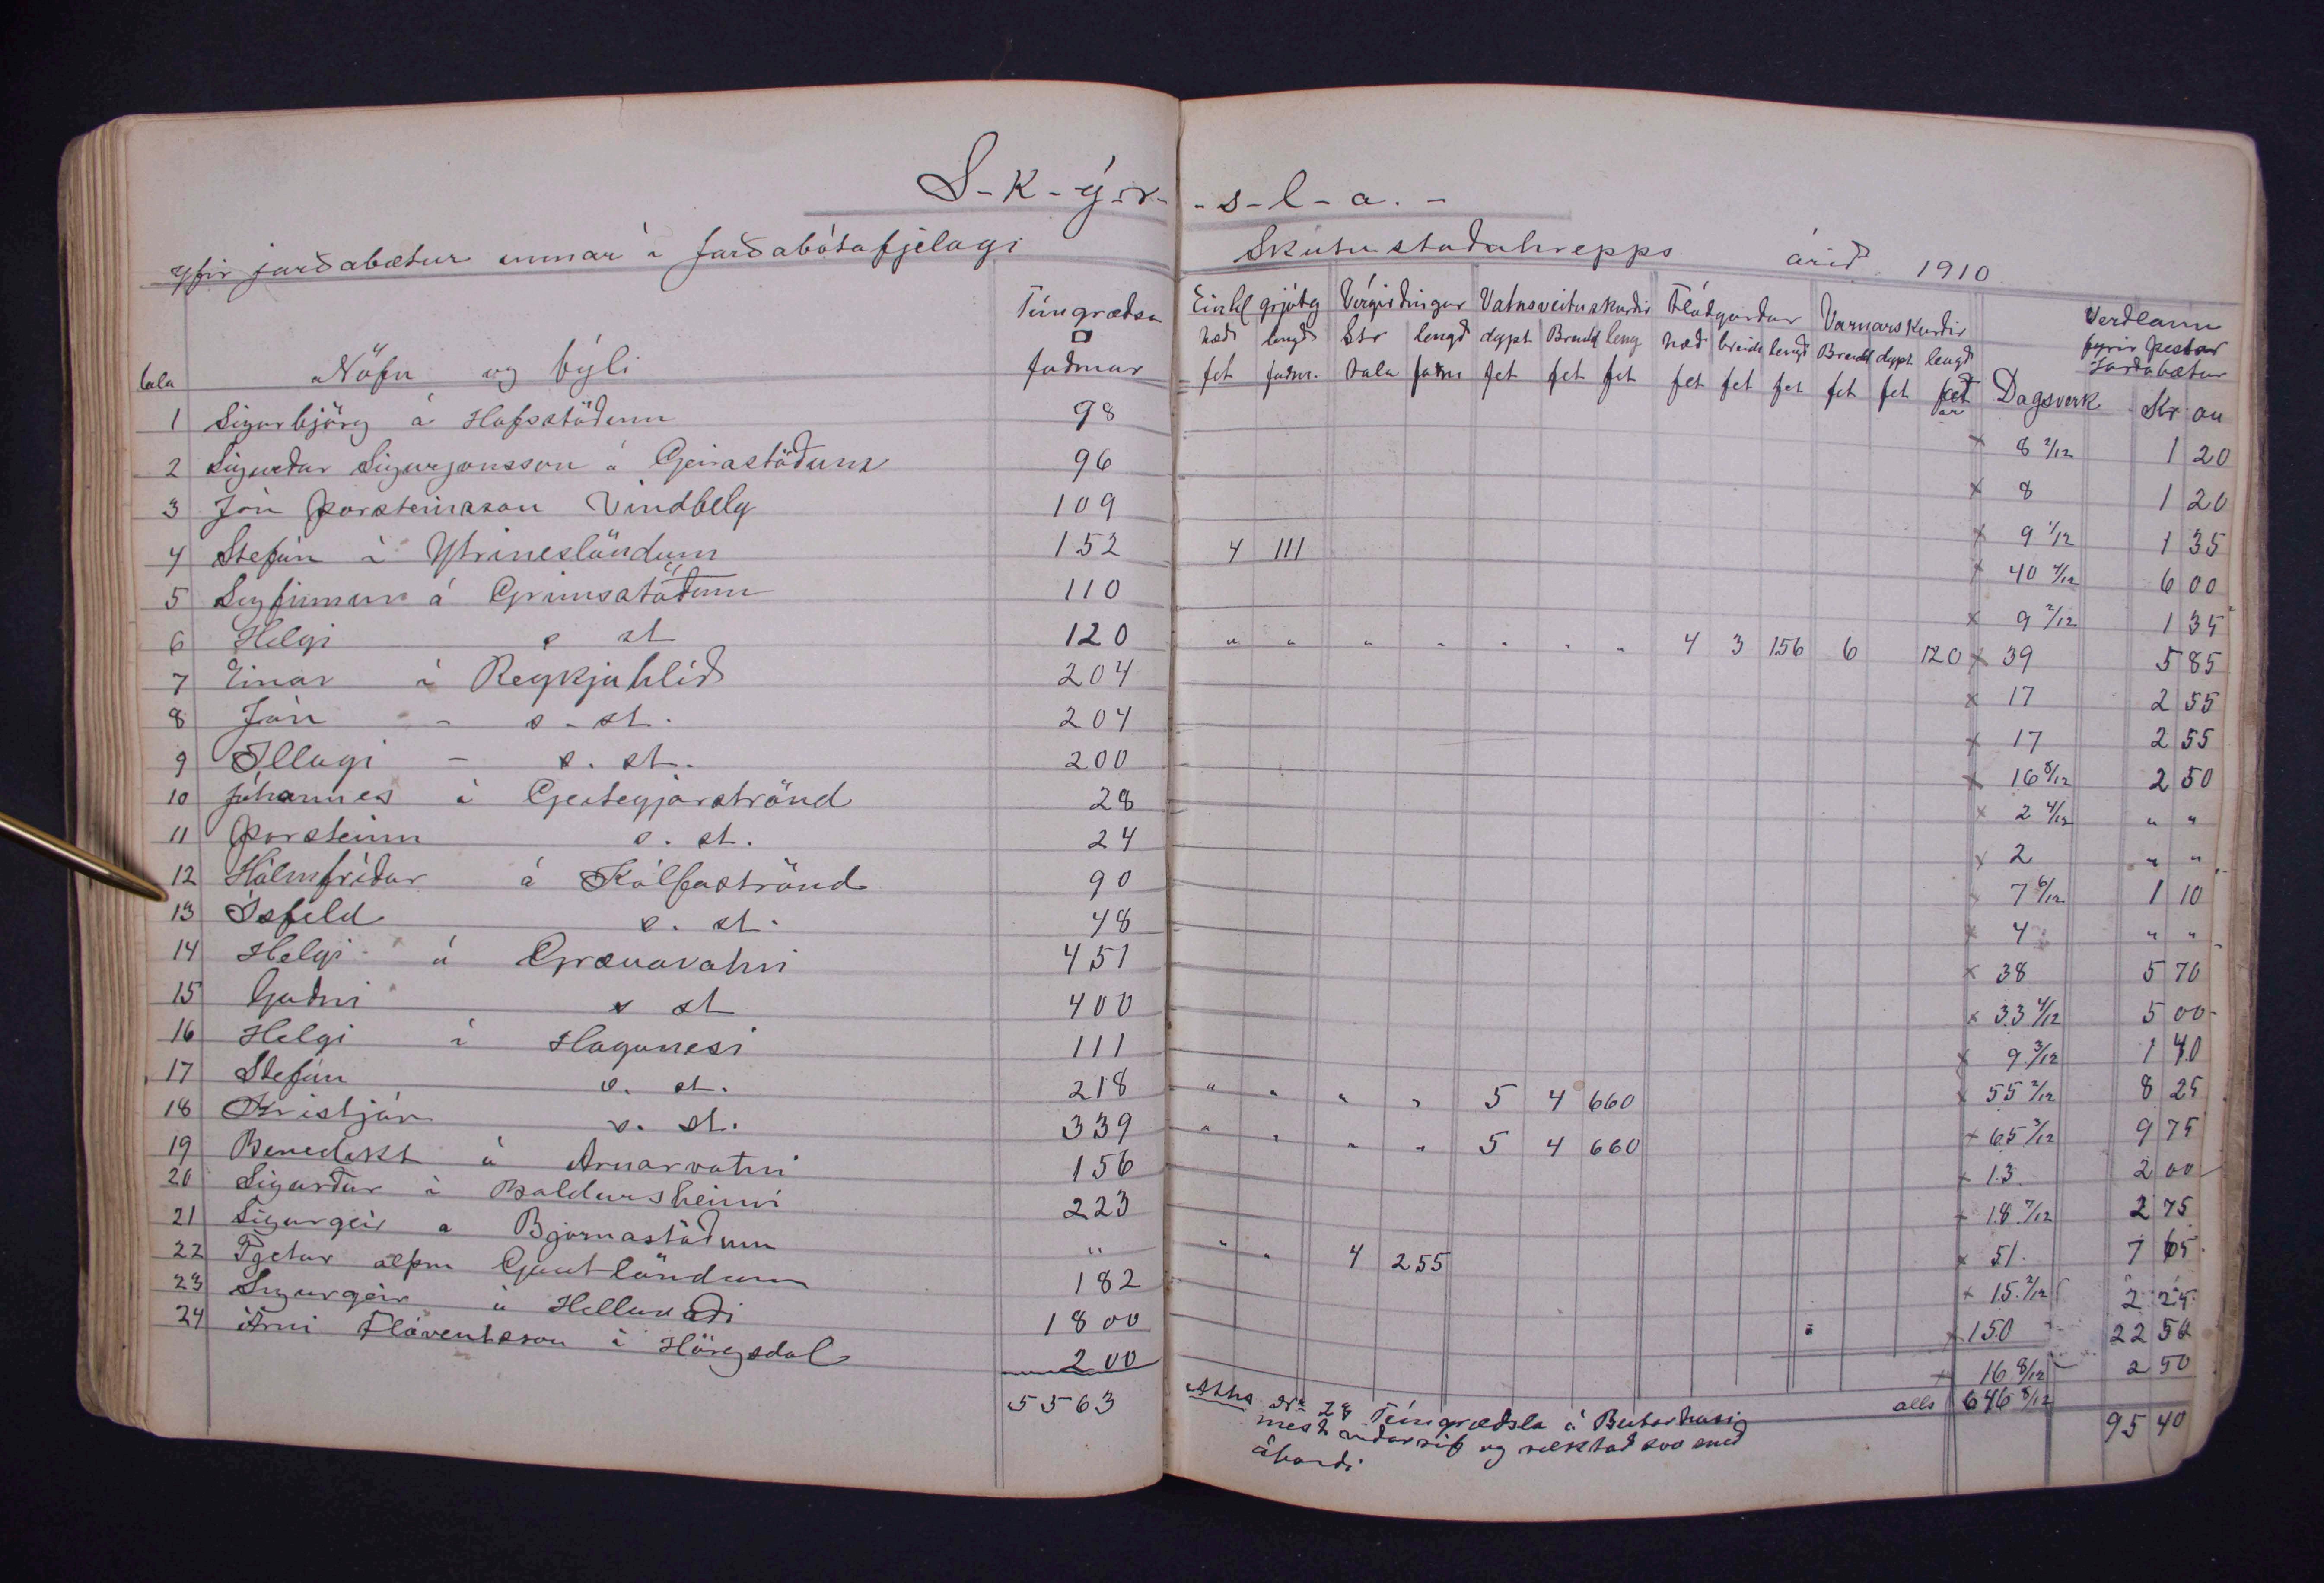 S-k-ý-r-s-l-a.-
yfir jarðabætur unnar í Jarðabótafjelagi Skútustaðahrepps árið 1910
tala Nöfn og býli Túngræðsla □ faðmar Einhl grjótg hæð fet lengd faðm. Vírgirðingar Str tala lengd faðm Vatnsveituskurðir dypt fet Breidd fet leng fet Flóðgarðar hæð fet breidd fet lengd fet Varnarskurðir Breidd fet dypt fet lengd fet Dagsverk Verðlaun fyrir þessar Jarðabætur Kr au
1 Sigurbjörg á Hofsstöðum 98 × 8 2/12 1 20
2 Sigurður Sigurjonsson á Geirastöðum 96 × 8 1 20
3 Jón Þorsteinsson Vindbelg 109 × 9 1/12 1 35
4 Stefán á Ytrineslöndum 152 4 111 × 40 4/12 6 00
5 Sigfinnur á Grímsstöðum 110 × 9 2/12 1 35
6 Helgi s st 120 " " " " " " " 4 3 156 6 120 × 39 5 85
7 Einar í Reykjahlíð 204 × 17 2 55
8 Jón - s-st. 204 × 17 2 55
9 Illugi - s. st. 200 × 16 8/12 2 50
10 Jóhannes í Geitegjarströnd 28 × 2 4/12 " "
11 Þorsteinn s. st. 24 × 2 " "
12 Hólmfríður á Kálfaströnd 90 × 7 6/12 1 10
13 Ísfeld s. st. 48 × 4 " "
14 Helgi á Grænavatni 451 × 38 5 70
15 Guðni s st 400 × 33 4/12 5 00
16 Helgi í Haganesi 111 × 9 3/12 1 40
17 Stefán s. st. 218 " " " " 5 4 660 × 55 2/12 8 25
18 Kristján s. st. 339 " " " " 5 4 660 × 65 3/12 9 75
19 Benedikt á Arnarvatni 156 × 13 2 00
20 Sigurður í Baldursheimi 223 × 18 7/12 2 75
21 Sigurgeir a Bjarnastöðum " " " 4 255 × 51 7 65
22 Pjetur alþm Gautlöndum 182 × 15 2/12 2 25
23 Sigurgeir á Helluvaði 1800 × 150 22 50
24 Árni Flóventsson í Hörgsdal 200 × 16 8/12 2 50
5563 alls 646 8/12 95 40
Aths Nr 23 Túngræðsla á Beitarhúsi
mest viðarrif og ræktað svo með
áburði